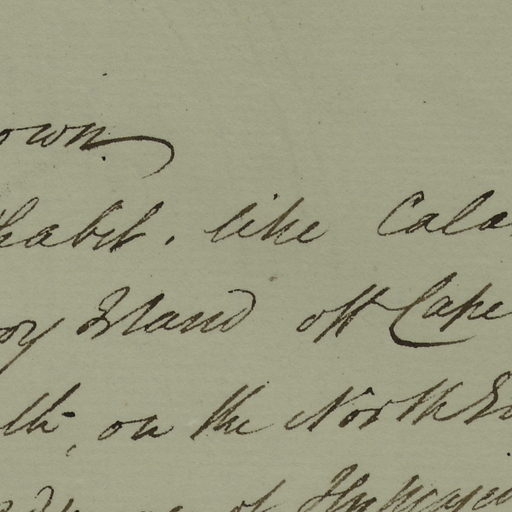 own
habit. like Cala
oy Island off Cape
lk, on the North Ea
of